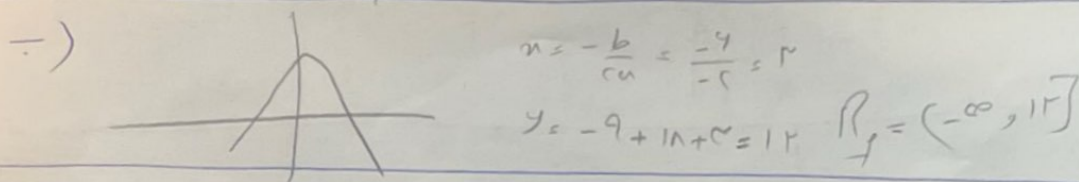 ب)
x = -b/۲a = -۶/-۲ = ۳
y = -۹ + ۱۸ + ۳ = ۱۲ R_f = (-∞, ۱۲]